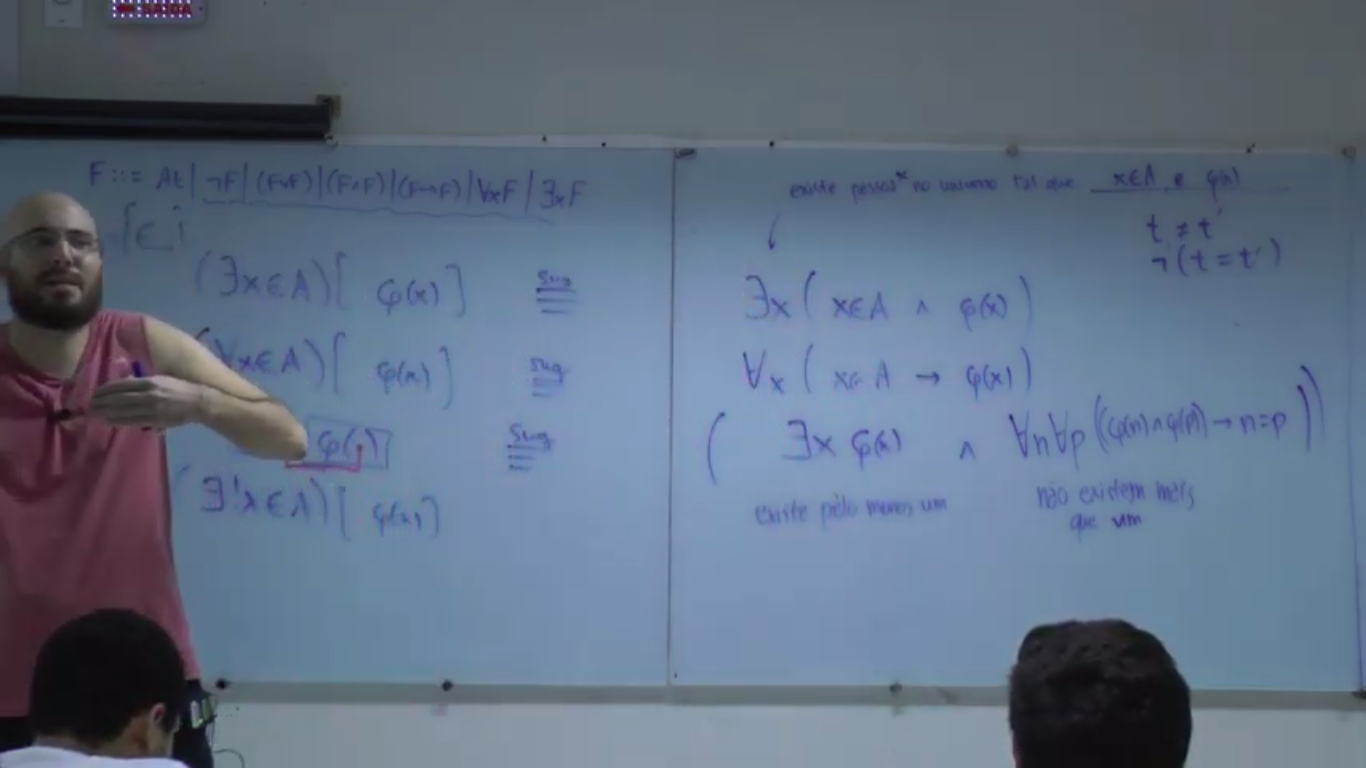 SAÍDA
F ::= At | ¬F | (F∨F) | (F∧F) | (F→F) | ∀xF | ∃xF
(∃x∈A)[ φ(x) ] sug
(∀x∈A)[ φ(x) ] sug
φ( ) sug
(∃!x∈A)[ φ(x) ]
existe pessoa x no universo tal que x∈A e φ(x)
t ≠ t'
¬(t = t')
∃x ( x∈A ∧ φ(x) )
∀x ( x∈A → φ(x) )
( ∃x φ(x) ∧ ∀n∀p ((φ(n)∧φ(p)) → n=p ))
existe pelo menos um
não existem mais
que um